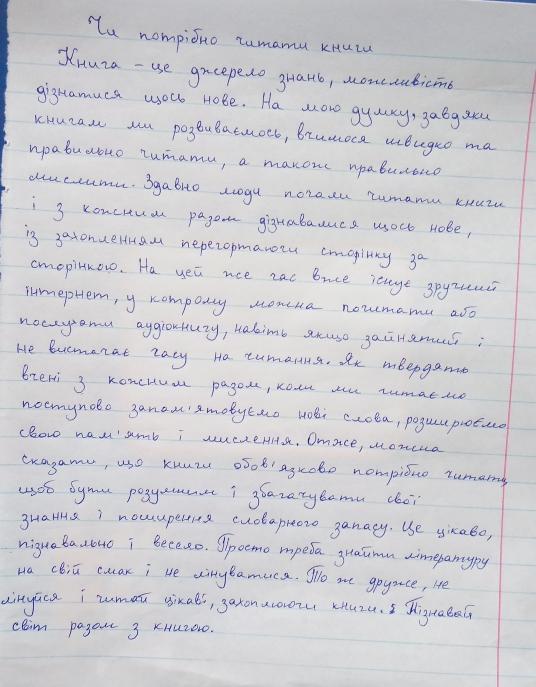 Чи потрібно читати книги
Книга – це джерело знань, можливість
дізнатися щось нове. На мою думку, завдяки
книгам ми розвиваємось, вчимося швидко та
правильно читати, а також правильно
мислити. Здавно люди почали читати книги
і з кожним разом дізнавалися щось нове,
із захопленням перегортаючи сторінку за
сторінкою. На цей же час вже існує зручний
інтернет, у котрому можна почитати або
послухати аудіокнигу, навіть якщо зайнятий і
не вистачає часу на читання. Як твердять
вчені з кожним разом, коли ми читаємо
поступово запам'ятовуємо нові слова, розширюємо
свою пам'ять і мислення. Отже, можна
сказати, що книги обов'язково потрібно читати,
щоб бути розумним і збагачувати свої
знання і поширення словарного запасу. Це цікаво,
пізнавально і весело. Просто треба знайти літературу
на свій смак і не лінуватися. То ж друже, не
лінуйся і читай цікаві, захоплюючи книги. Пізнавай
світ разом з книгою.